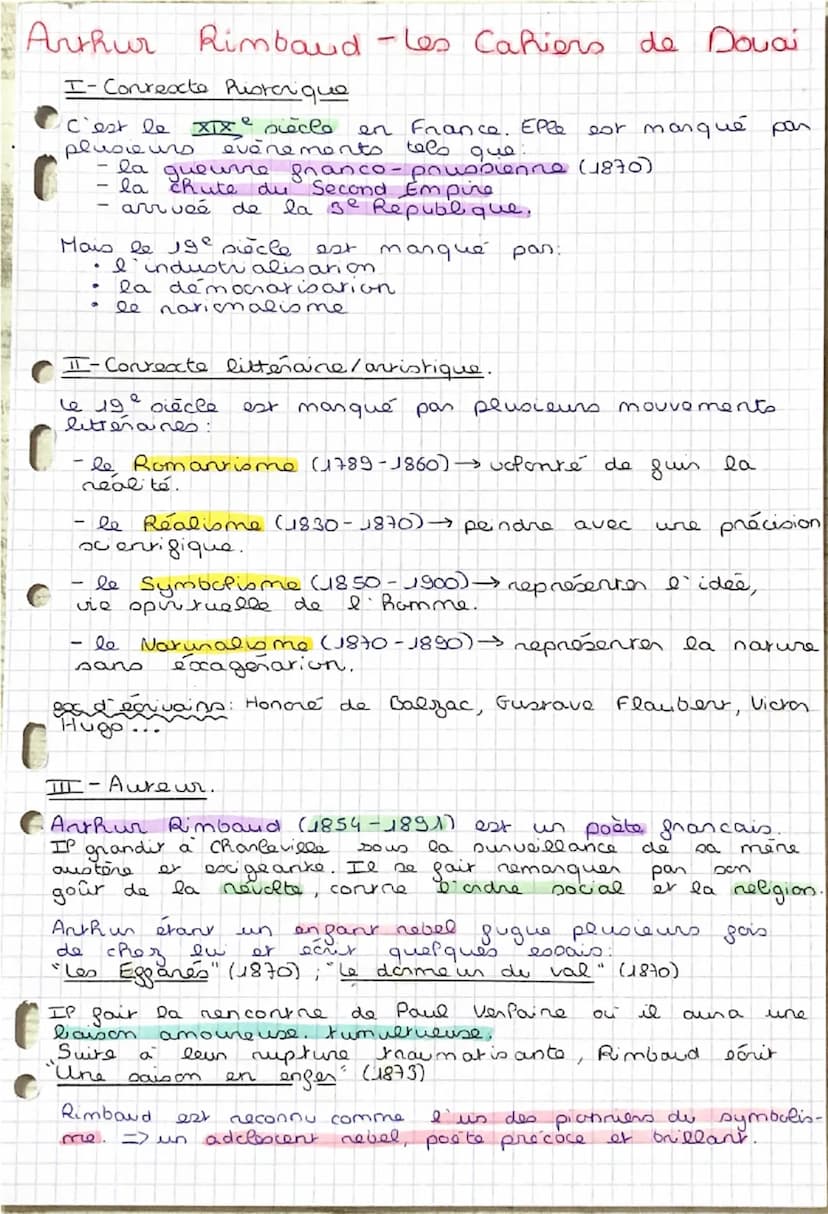 Arthur Rimbaud - Les Cahiers de Douai
I - Contexte historique
C'est le XIXe siècle en France. Elle est marqué par
plusieurs évènements tels que:
- la guerre franco-prussienne (1870)
- la chute du Second Empire
- arrivée de la 3e République.
Mais le 19e siècle est marqué par:
• l'industrialisation
• la démocratisation
• le nationalisme
II - Contexte littéraire/artistique.
Le 19e siècle est marqué par plusieurs mouvements
littéraires:
- le Romantisme (1789-1860) → volonté de fuir la
réalité.
- le Réalisme (1830-1870) → peindre avec une précision
scientifique.
- le Symbolisme (1850-1900) → représenter l'idée,
vie spirituelle de l'Homme.
- le Naturalisme (1870-1890) → représenter la nature
sans éxagération.
ex d'écrivains: Honoré de Balzac, Gustave Flaubert, Victor
Hugo...
III - Auteur.
Arthur Rimbaud (1854-1891) est un poète francais.
Il grandit à Charleville sous la surveillance de sa mère
austère et exigeante. Il se fait remarquer par son
goût de la révolte, contre l'ordre social et la religion.
Arthur étant un enfant rebel fugue plusieurs fois
de chez lui et écrit quelques essais:
"Les Effarés" (1870) ; "Le dormeur du val" (1870)
Il fait la rencontre de Paul Verlaine où il aura une
liaison amoureuse tumultueuse.
Suite à leur rupture traumatisante, Rimbaud écrit
"Une saison en enfer" (1873)
Rimbaud est reconnu comme l'un des pionniers du symbolis-
me. => un adolescent rebel, poète précoce et brillant.